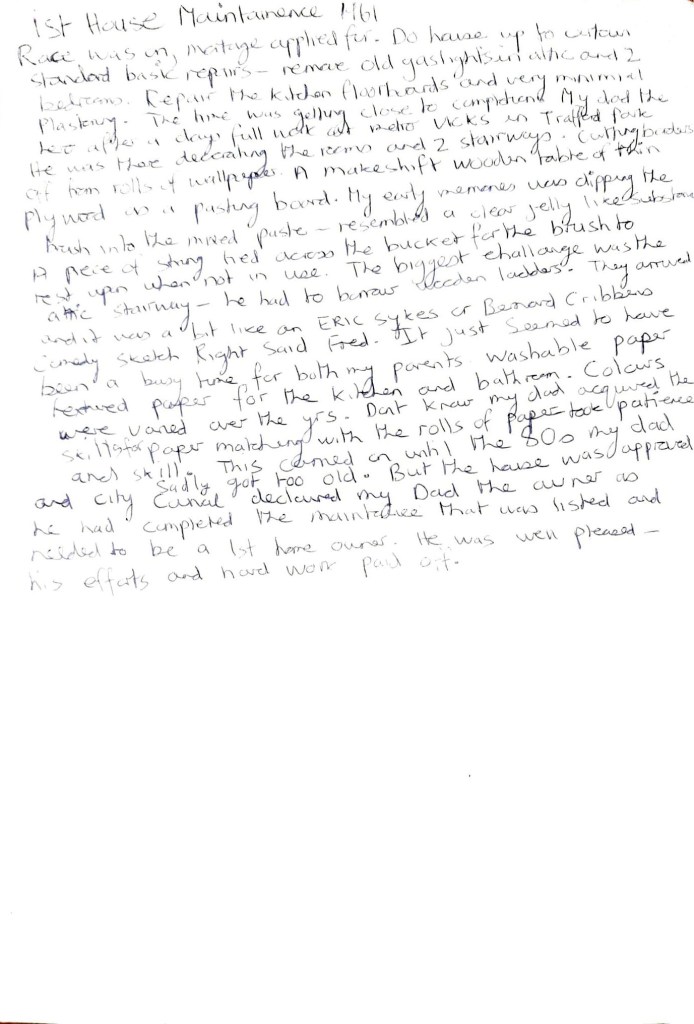 1st House Maintainence 1961
Race was on, mortage applied for. Do house up to certain
standard basic repairs - remove old gaslights in attic and 2
bedrooms. Repair the kitchen floorboards and very minimial
Plastering. The time was getting close to completion. My dad the
hero after a days full work at metro Vicks in Trafford Park
He was there decorating the rooms and 2 stairways. Cutting borders
of from rolls of wallpaper. A makeshift wooden table of thin
Plywood as a pasting board. My early memories was dipping the
brush into the mixed paste - resembled a clear jelly like substance
A piece of string tied across the bucket for the brush to
rest upon when not in use. The biggest challange was the
attic stairway - he had to borrow wooden ladders. They arrived
and it was a bit like an ERIC Sykes or Bernard Cribbens
comedy sketch Right Said Fred. It just seemed to have
been a busy time for both my parents washable paper
textured paper for the kitchen and bathroom. Colours
were varied over the yrs. Dont know my dad acquired the
skills for paper matching with the rolls of paper took patience
and skill. This carried on until the 80s my dad
Sadly got too old. But the house was approved
and City Cuncil declared my Dad the owner as
he had completed the that was listed and
needed to be a 1st home owner. He was well pleased -
his efforts and hard work paid off.